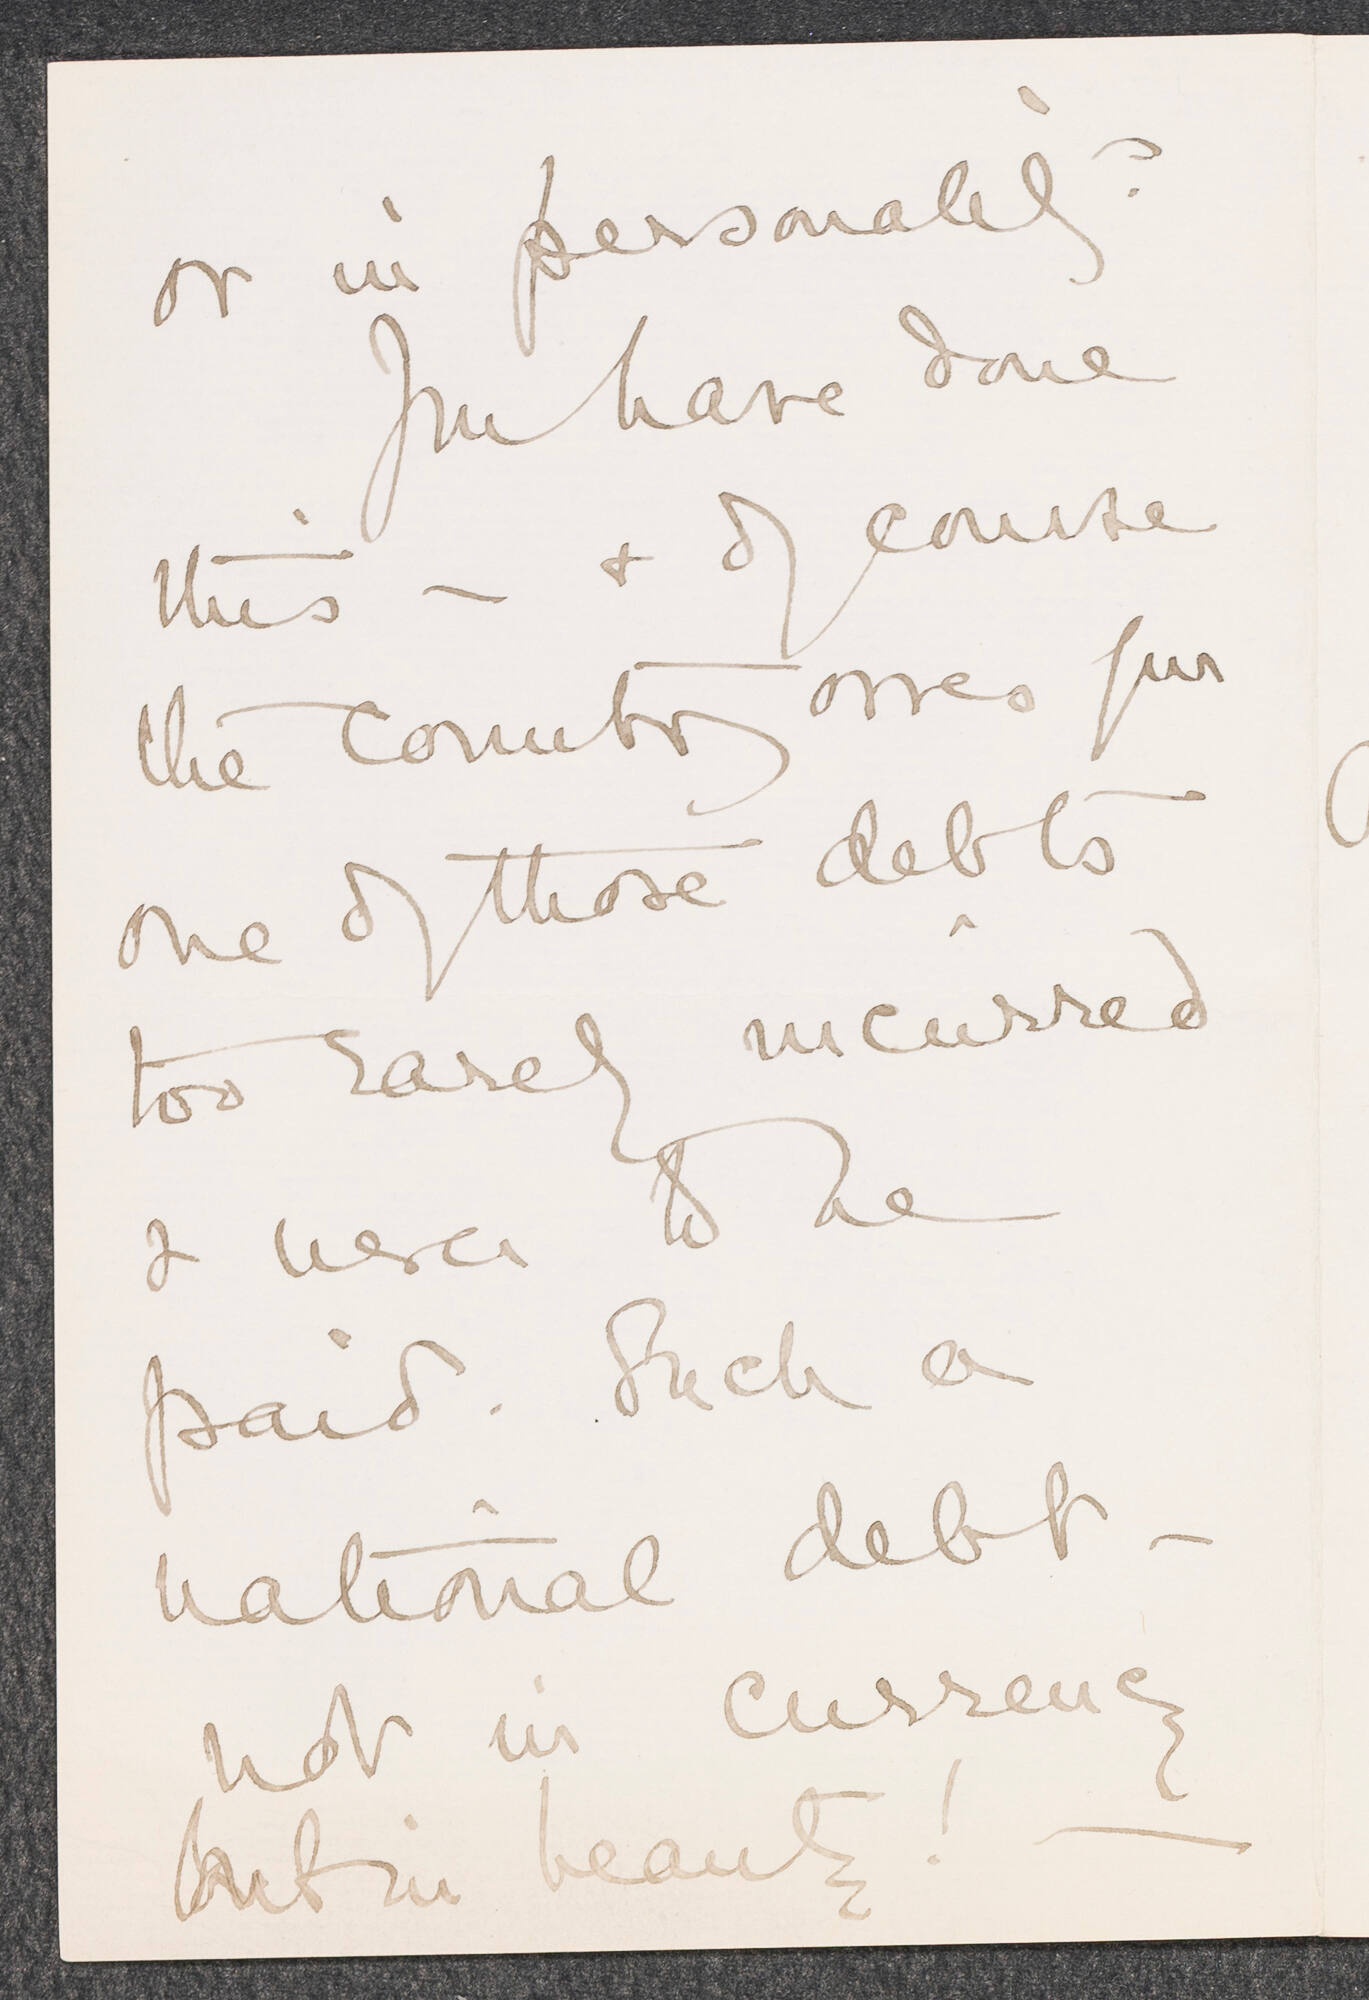 or in personality?
You have done
this – & of course
the country owes you
one of those debts
too rarely incurred
& never to be
paid. Such a
national debt –
not in currency
but in beauty! —